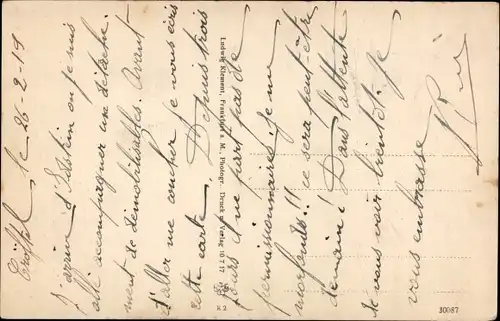 le 26-2-19
J'arrive d'Erstein où je suis
allé accompagner un détache-
ment de démobilisables. Avant
d'aller me coucher je vous écris
cette carte. Depuis trois
jours il ne part pas de
permissionnaires. Je me
morfonds!! ce sera peut-être
demain! Dans l'attente
de vous voir bientôt je
vous embrasse
Ludwig Klement, Frankfurt a. M., Photogr. Druck u. Verlag 10 7 17
K 2
30087